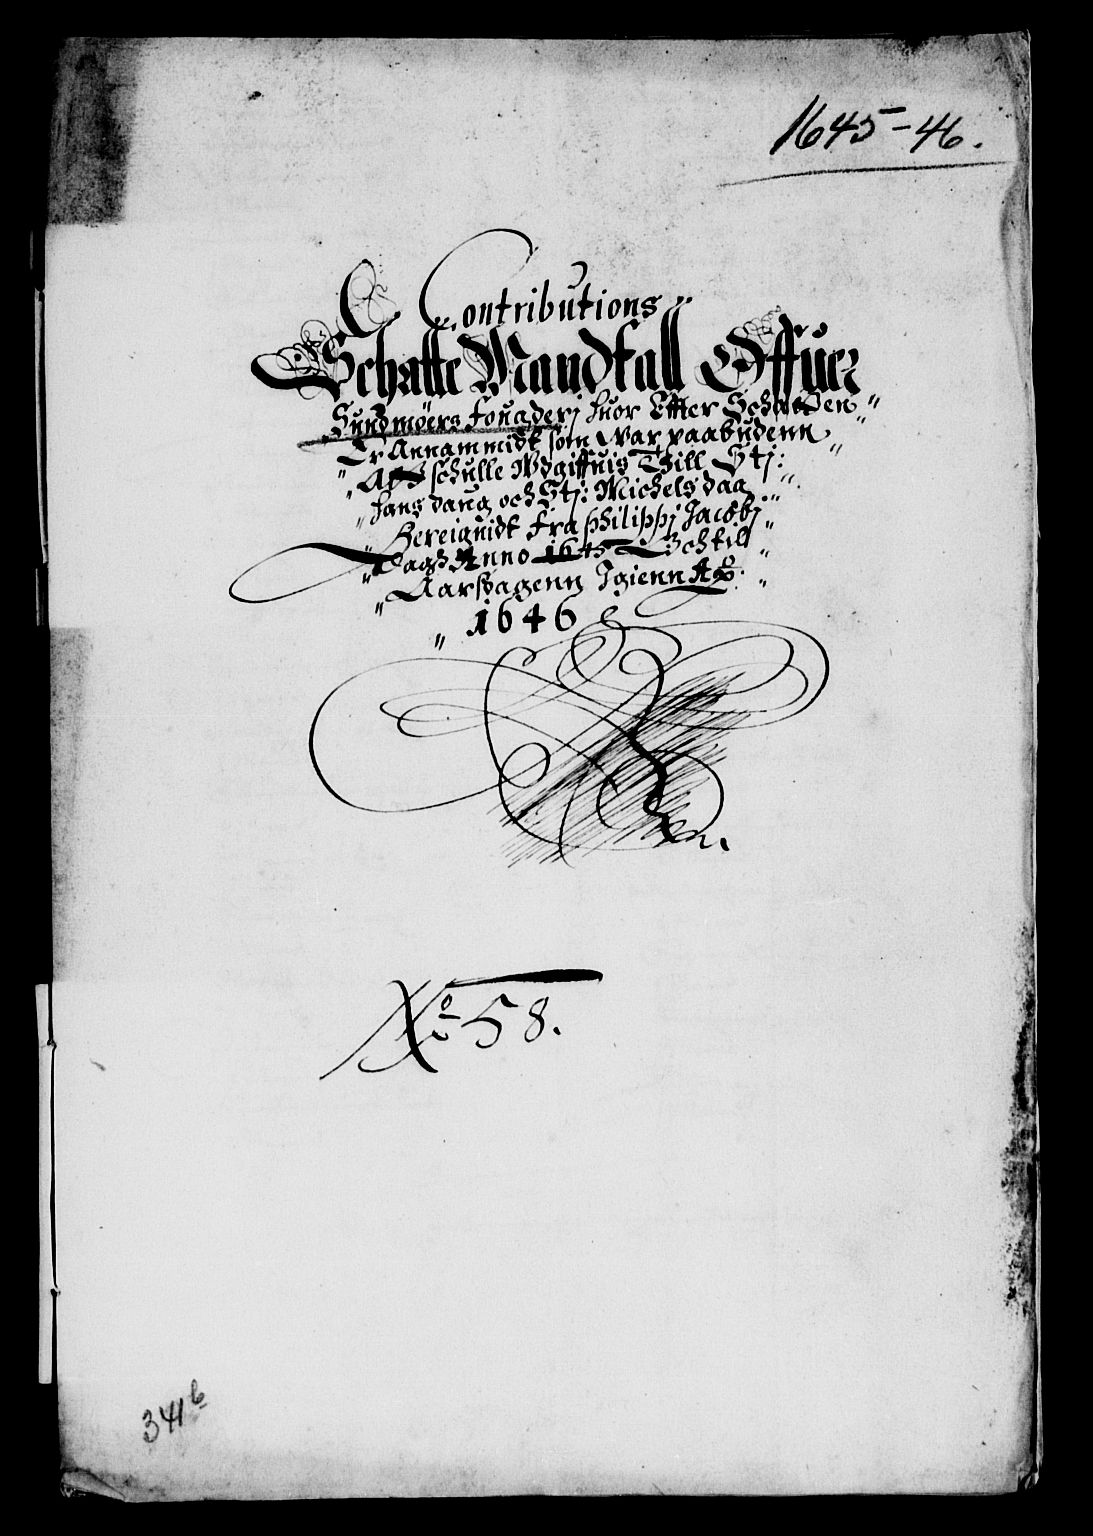 1645-46.
Contributions
Schatte Mandtall Offuer
Sundmöers fougderj huor Effter Schatten
Er Annammidt som war paabudenn
Att schulle Wdgiffuis Till Stj:
hans daug och Stj: Michels daa
Bereignidt fra philippj Jacobj
Dags Anno 1645 Och till
Aarsdagenn Igienn Ao:
1646
No 58.
341b